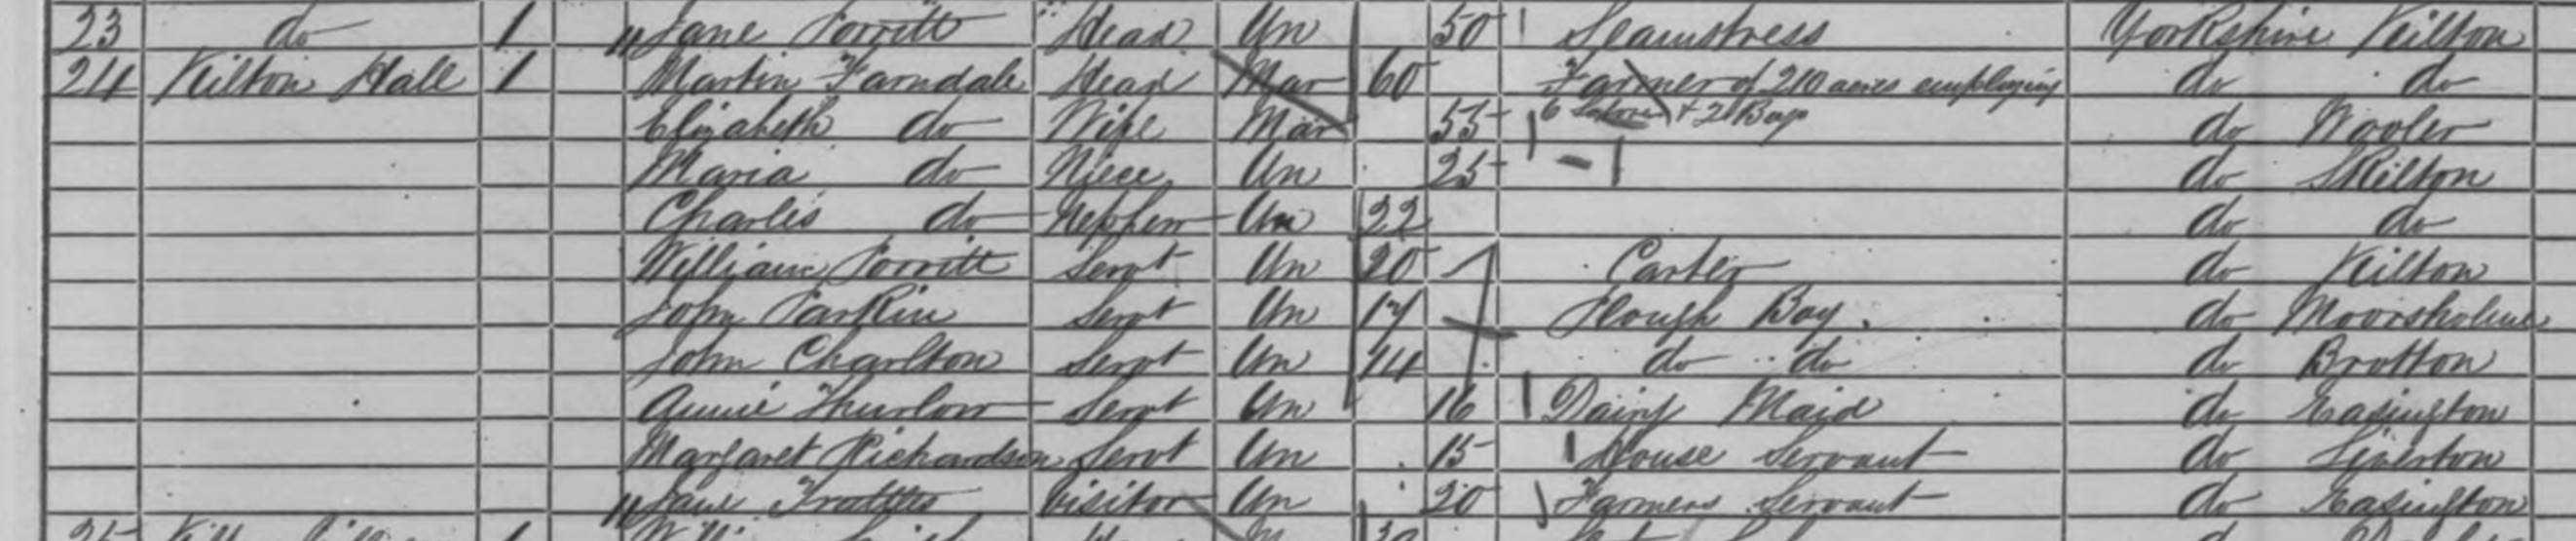 23 do 1 Jane Porritt Head Un 50 Seamstress Yorkshire Kilton
24 Kilton Hall 1 Martin Farndale Head Mar 60 Farmer of 210 acres employing do do
6 Labores + 2 Boys
Elizabeth do Wife Mar 55 do
Maria do Niece Un 25 do Skilton
Charles do Nephew Un 22 do do
William Porritt Servt Un 20 Carter do Kilton
John Parkin Servt Un 17 Plough Boy. do Moorsholme
John Charlton Servt Un 14 do do do Brotton
Annie Thurlow Servt Un 16 Dairy Maid do Easington
Margaret Richardson Servt Un 15 House Servant do Liverton
Jane Trattles Visitor Un 20 Farmers Servant do Easington
25 1